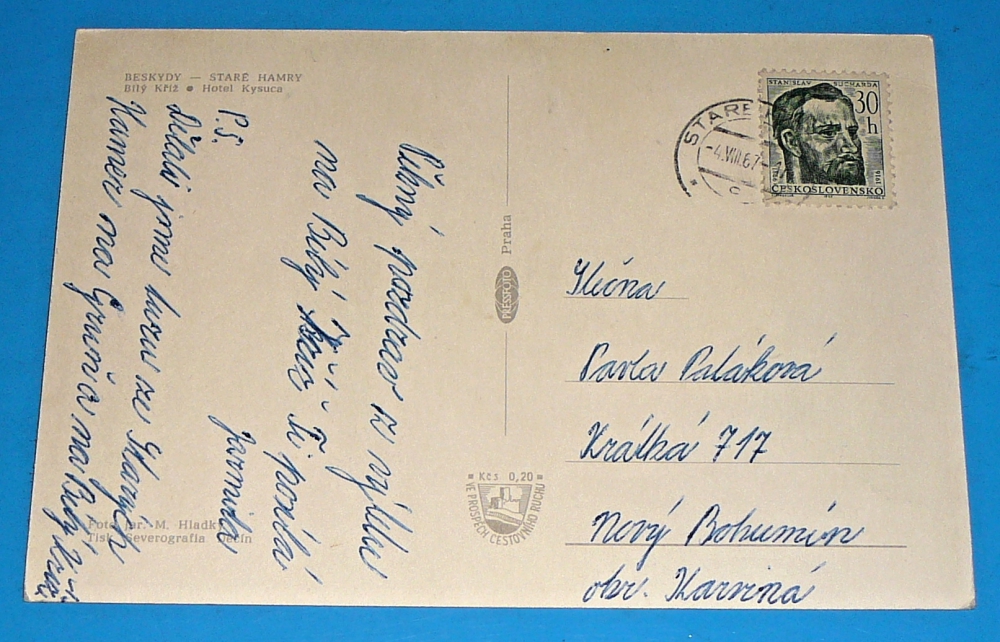 BESKYDY — STARÉ HAMRY
Bílý Kříž • Hotel Kysuca
Pěkný pozdrav z výletu
na Bílý Kříž Ti posílá
Jarmila
P.S.
Dělali jsme túru ze Starých
Hamer na Gruň a na Bílý Kříž
Foto Jar. M. Hladký
Tisk Severografia Děčín
PRESSFOTO Praha
Kčs 0,20
VE PROSPĚCH CESTOVNÍHO RUCHU
STARÉ
-4.VIII.67-
STANISLAV SUCHARDA
30 h
1866
1916
ČESKOSLOVENSKO
Slečna
Pavla Paláková
Krátká 717
Nový Bohumín
okr. Karviná